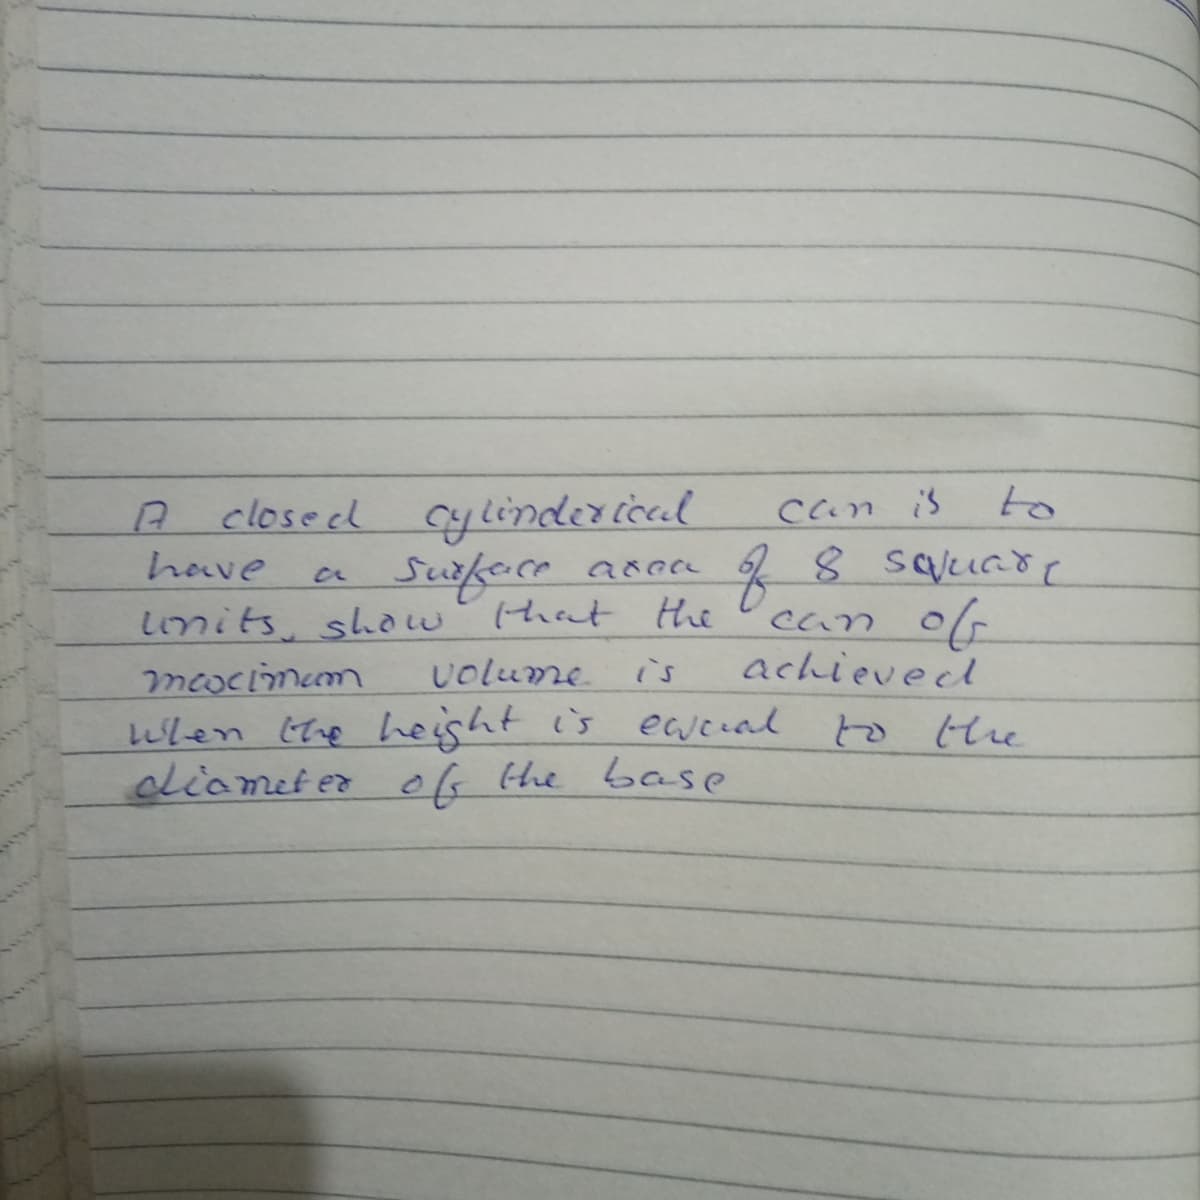 A closed cylinderical can is to
have a surface area of 8 square
units, show that the can of
maximum volume is achieved
when the height is equal to the
diameter of the base